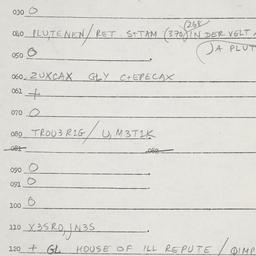 030 O
25K
040 PLUTENEN/RET S+TAM (370) IN DER VELT
) A PLUT
050 O
060 ZUXCAX GLY C+EPECAX
061 +
070 O
080 TROU3R1G/ U,M3T1K
081 082
090 O
091 O
100 O
110 X3SRO,JN3S
120 + GL HOUSE OF ILL REPUTE / QIMP